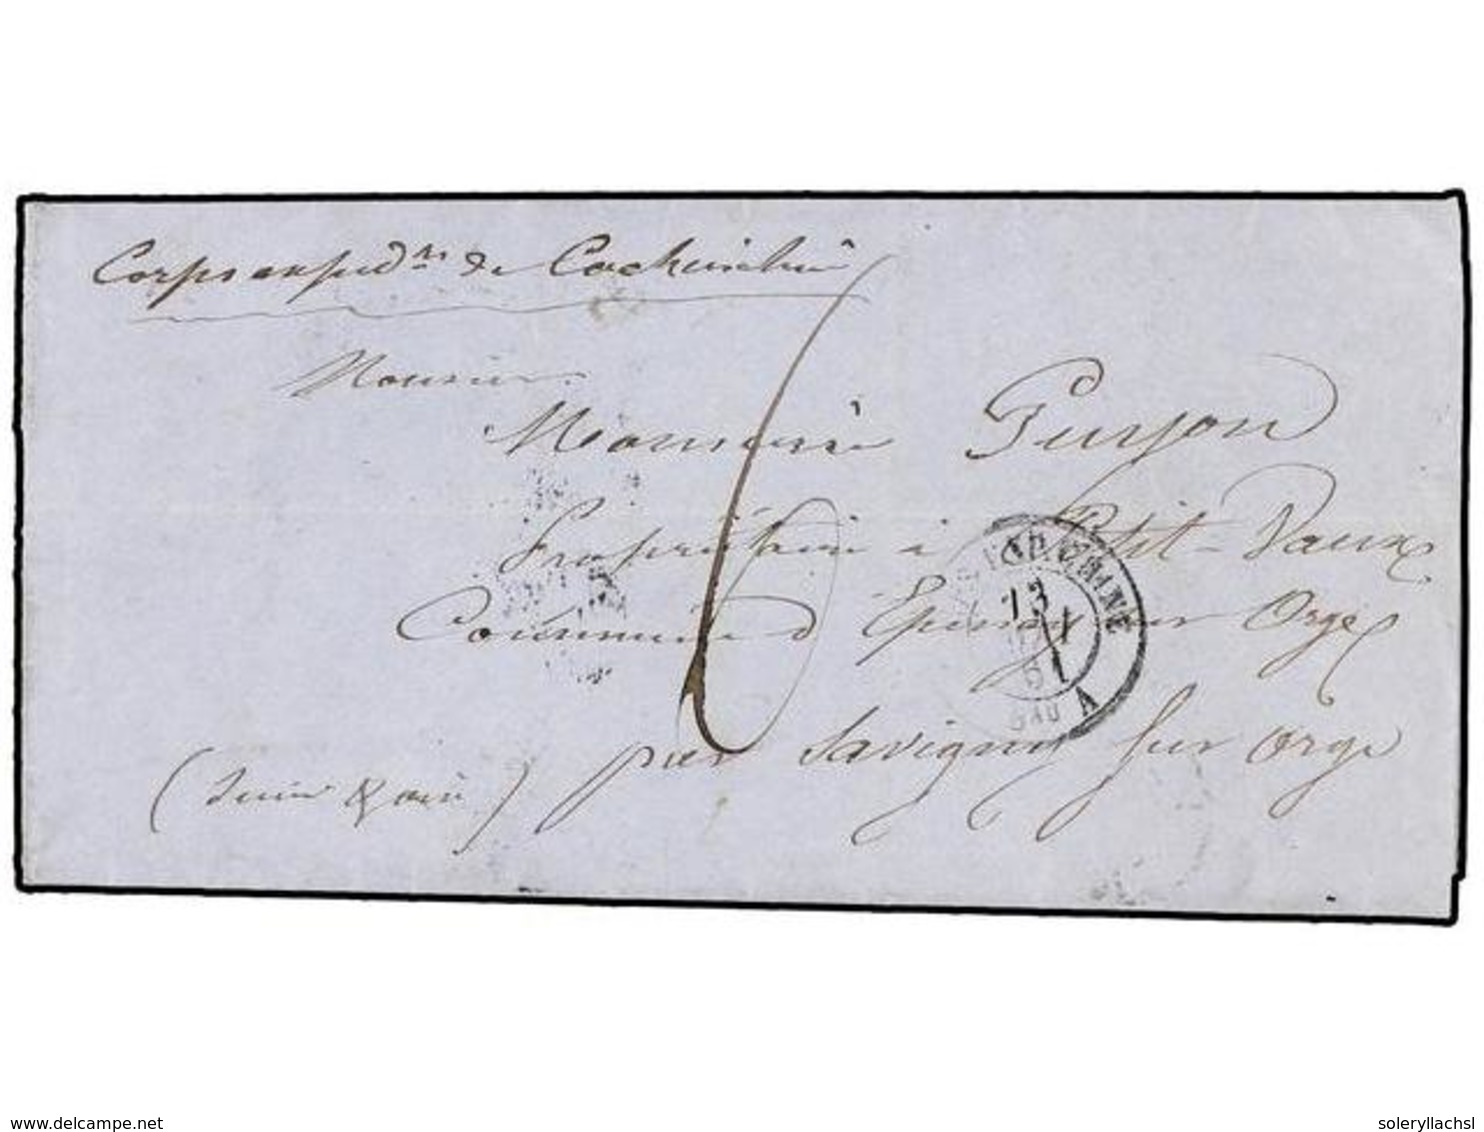 Corps expéd.re de Cochinchine
Monsieur
Monsieur Guyon
Propriétaire à Petit-Vaux
Commune d'Epinay sur Orge
par Savigny sur Orge
(Seine & Oise)
6
CHINE
13
61
BAU A
www.delcampe.net
soleryllachsl